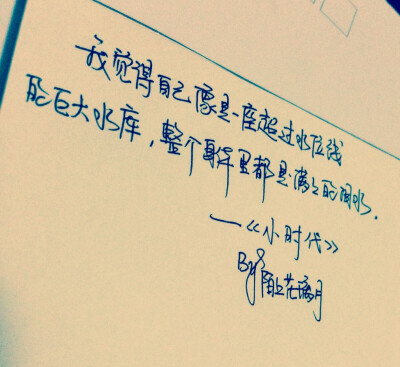 我觉得自己像是一座超过水位线
的巨大水库，整个身体里都是满满的闷水.
——《小时代》
By